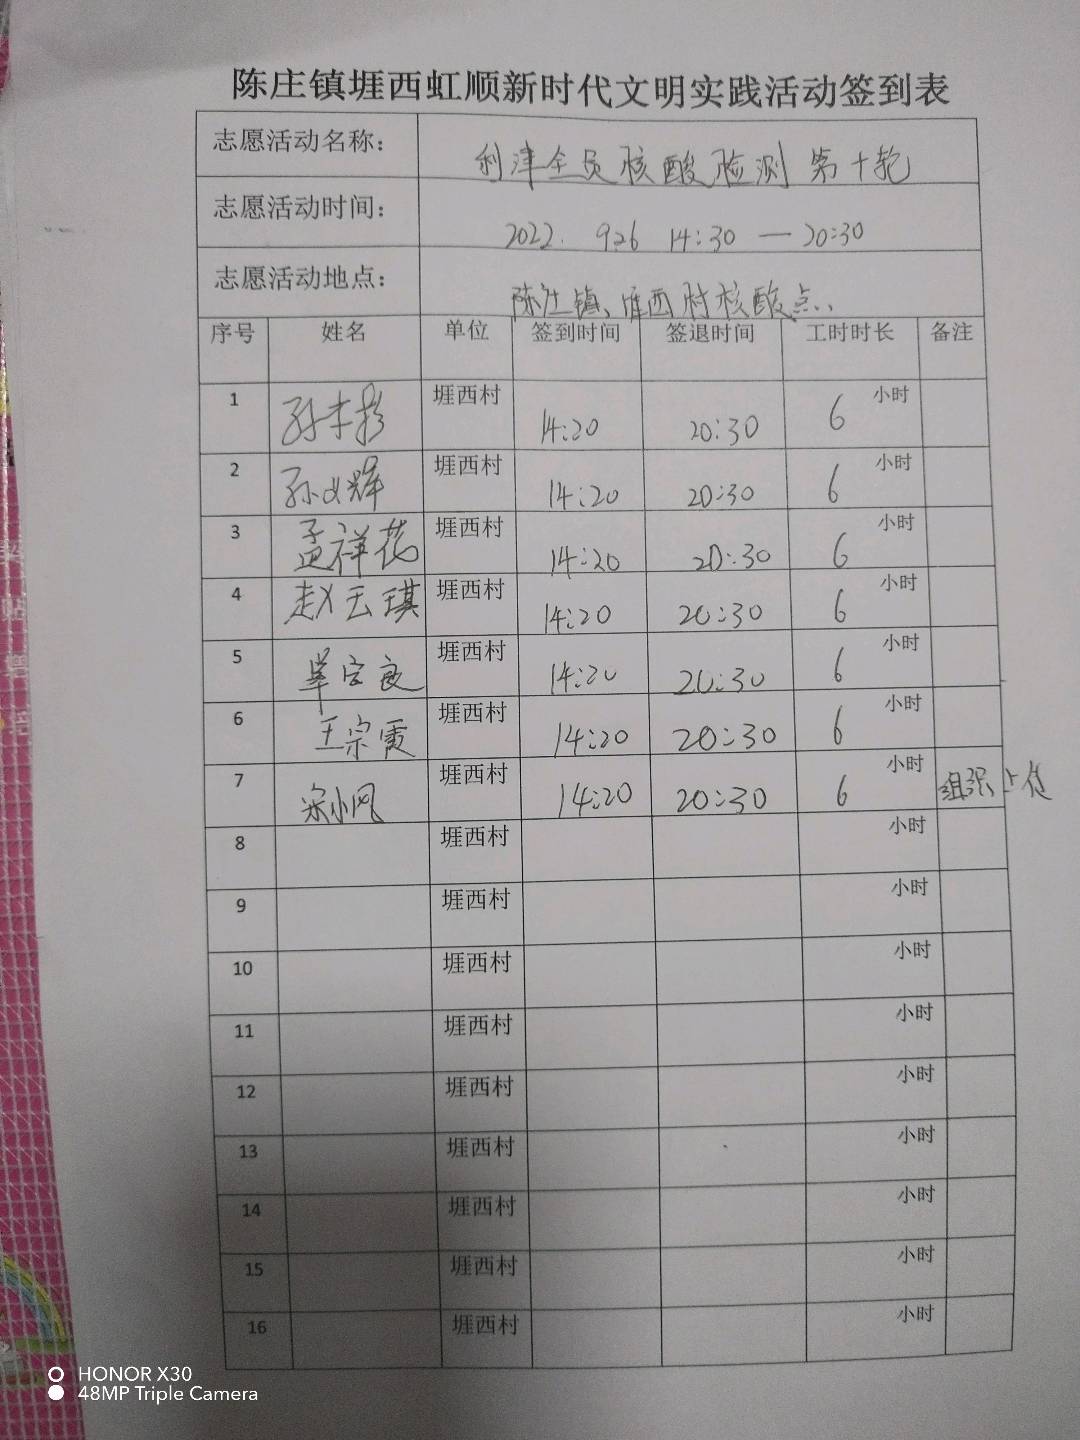 陈庄镇堐西虹顺新时代文明实践活动签到表
志愿活动名称： 利津全员核酸检测第十轮
志愿活动时间： 2022. 9.26 14:30 — 20:30
志愿活动地点： 陈庄镇、堐西村核酸点
序号 姓名 单位 签到时间 签退时间 工时时长 备注
1 堐西村 14:20 20:30 6 小时
2 堐西村 14:20 20:30 6 小时
3 孟祥花 堐西村 14:20 20:30 6 小时
4 赵云琪 堐西村 14:20 20:30 6 小时
5 堐西村 14:20 20:30 6 小时
6 王宗霞 堐西村 14:20 20:30 6 小时
7 宋小风 堐西村 14:20 20:30 6 小时 组织上传
8 堐西村 小时
9 堐西村 小时
10 堐西村 小时
11 堐西村 小时
12 堐西村 小时
13 堐西村 小时
14 堐西村 小时
15 堐西村 小时
16 堐西村 小时
HONOR X30
48MP Triple Camera